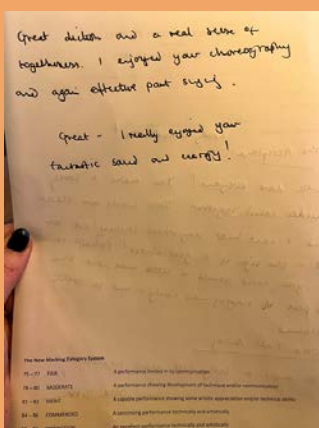 Great diction and a real sense of
togetherness. I enjoyed your choreography
and again effective part singing.
Great - I really enjoyed your
fantastic sound and energy!
The New Marking Category System
75 - 77 FAIR A performance limited in its communication
78 - 80 MODERATE A performance showing development of technique and/or communication
81 - 83 MERIT A capable performance showing some artistic appreciation and/or technical ability
84 - 86 COMMENDED A convincing performance technically and artistically
An excellent performance technically and artistically